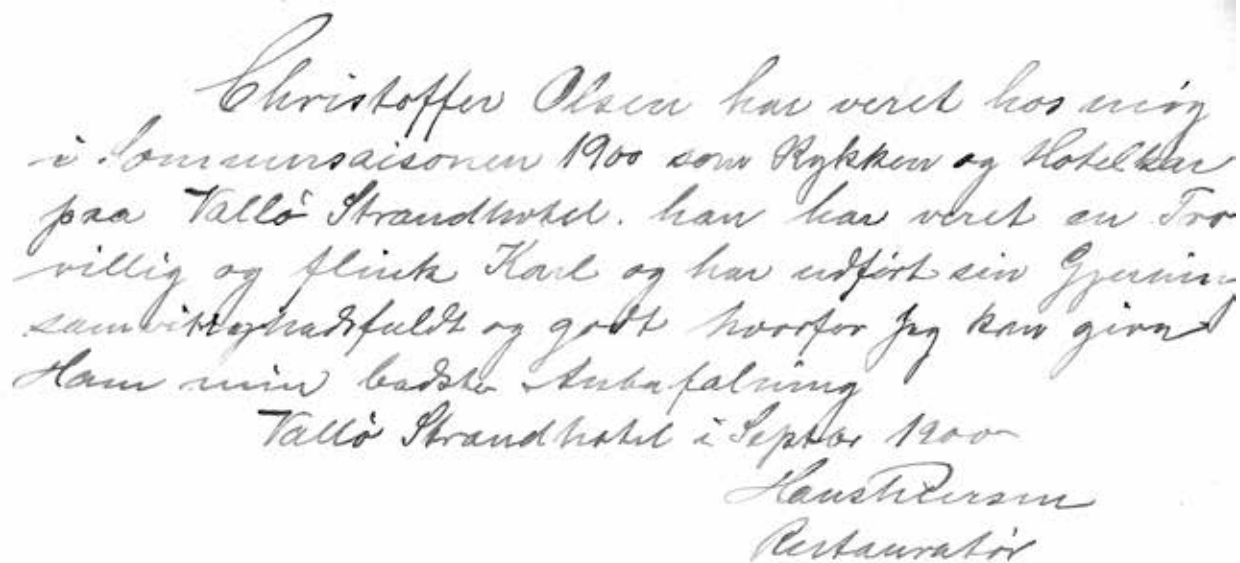 Christoffer Olsen har veret hos mig
i Sommersaisonen 1900 som Kykken og Hotelkar
paa Vallö Strandhotel. han har veret en Tro
villig og flink Karl og har udført sin Gjerning
samvittighedsfuldt og godt hvorfor Jeg kan give
Ham min bedste Anbefalning
Vallö Strandhotel i Septbr 1900
Restauratör